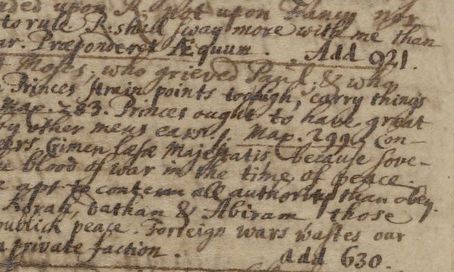 upon R. not upon Fancy nor
to rule R. shall sway more with me than
ar. Præponderet Æquum. Add 921.
Moses, who grieved Paul, & who
Princes strain points too high, carry things
Max. 283. Princes ought to have great
by other mens ears. Max. 299. Con-
ders. Crimen læsæ Majestatis because sove-
e blood of war in the time of peace.
e apt to contemn all authority than obey.
Korah, Dathan & Abiram those
publick peace. Forreign wars wastes our
a private faction. add 630.